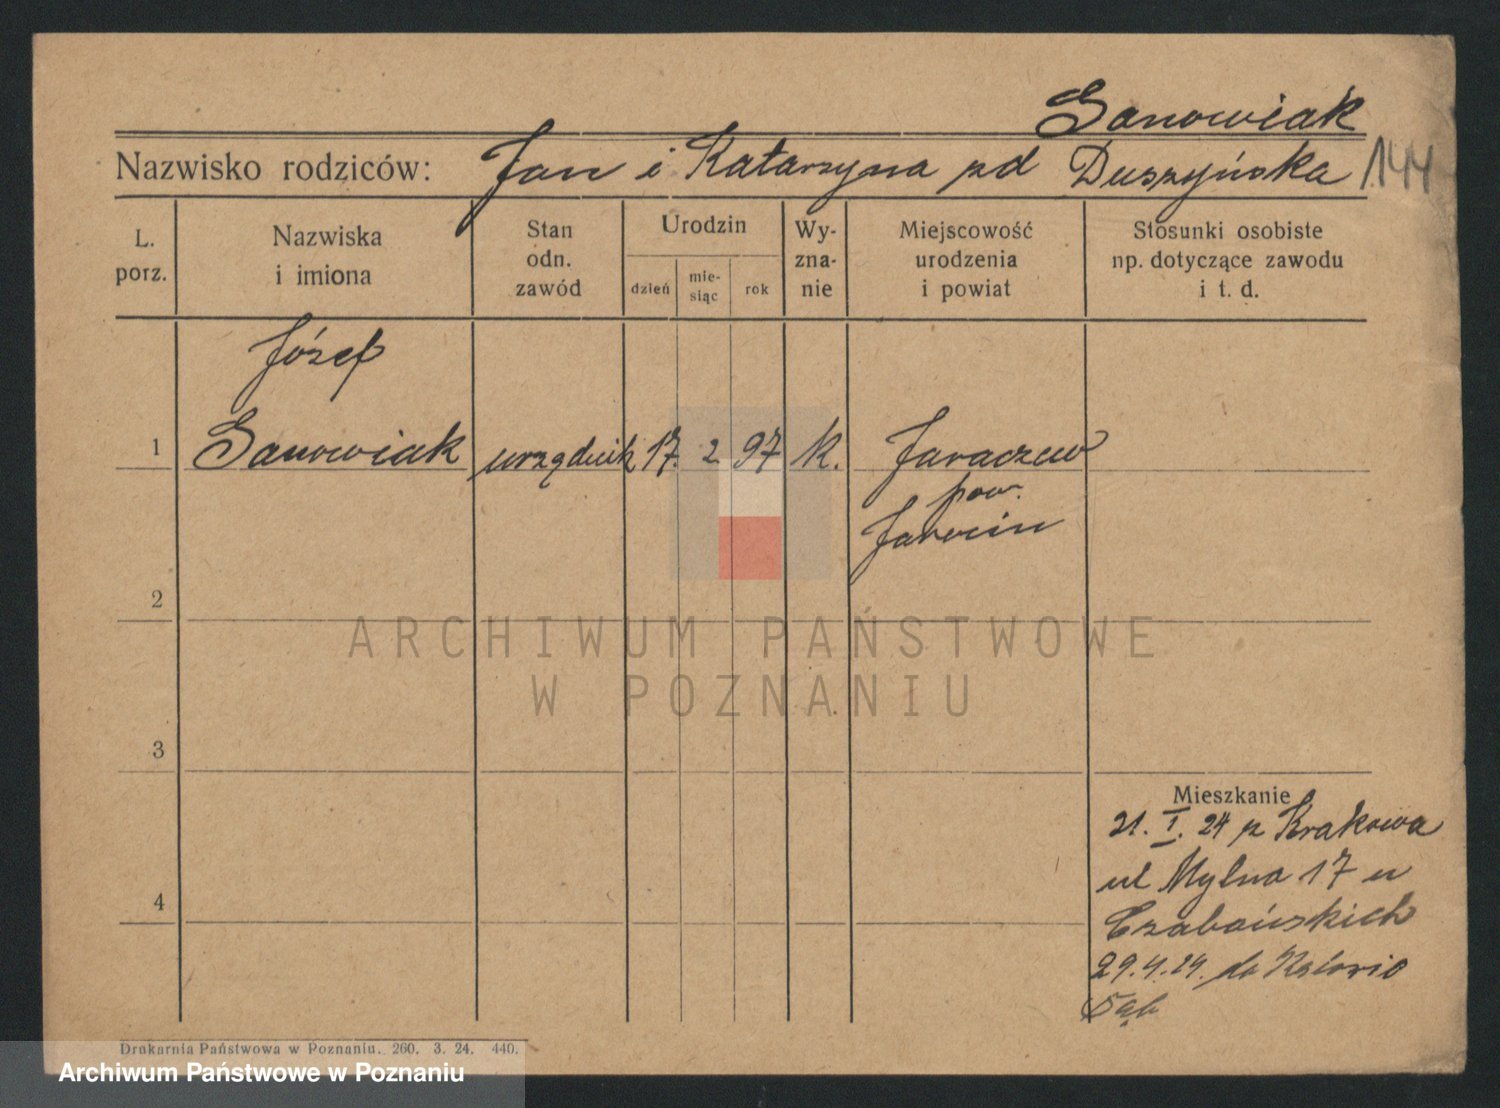 Sanowiak
Nazwisko rodziców: Jan i Katarzyna zd Duszyńska 144
L. porz.
Nazwiska i imiona
Stan odn. zawód
Urodzin
dzień
mie-
siąc
rok
Wy-
zna-
nie
Miejscowość urodzenia i powiat
Stosunki osobiste np. dotyczące zawodu i t. d.
Józef
1 Sanowiak urzędnik 17. 2 97 k. Jaraczew
pow.
Jarocin
2
ARCHIWUM PAŃSTWOWE
W POZNANIU
3
Mieszkanie
21. I. 24 z Krakowa
ul Mylna 17 u
4
29.4.24. do
Drukarnia Państwowa w Poznaniu. 260. 3. 24. 440.
Archiwum Państwowe w Poznaniu